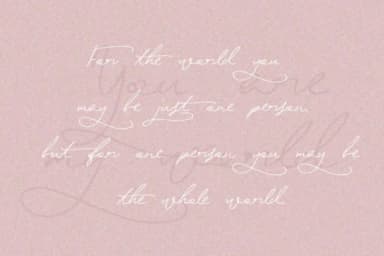 For the world you
may be just one person,
but for one person you may be
the whole world.
You are
my world